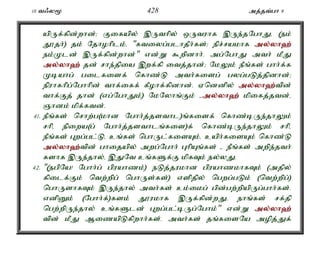 10 வஃலமூ 428 அத்தவ்பா 9
யிருக்கின்றான்; குகையில் இருவரில் ஒருவராக இருந்தபோது, (நம்
தூதர்) தம் தோழரிடம், "கவலைப்படாதீர்கள்; நிச்சயமாக அல்லாஹ்
நம்முடன் இருக்கின்றான்" என்று கூறினார். அப்போது அவர் மீது
அல்லாஹ் தன் சாந்தியை இறக்கி வைத்தான்; மேலும் நீங்கள் பார்க்க
முடியாப் படைகளைக் கொண்டு அவர்களைப் பலப்படுத்தினான்;
நிராகரிப்போரின் வாக்கைக் கீழாக்கினான். ஏனெனில் அல்லாஹ்வின்
வாக்குத் தான் (எப்போதும்) மேலோங்கும் .அல்லாஹ் மிகைத்தவன்,
ஞானம் மிக்கவன்.
41. நீங்கள் சொற்ப(மான போர்த்தளவாட)ங்களைக் கொண்டிருந்தாலும்
சரி, நிறைய(ப் போர்த்தளவாடங்களை)க் கொண்டிருந்தாலும் சரி,
நீங்கள் புறப்பட்டு, உங்கள் பொருட்களையும், உயிர்களையும் கொண்டு
அல்லாஹ்வின் பாதையில் அறப்போர் புரியுங்கள் - நீங்கள் அறிந்தவர்
களாக இருந்தால், இதுவே உங்களுக்கு மிகவும் நல்லது.
42. "(நபியே! போர்ப் பிரயாணம்) நடுத்தரமான பிரயாணமாகவும் (அதில்
கிடைக்கும் வெற்றிப் பொருள்கள்) எளிதில் பெறப்படும் (வெற்றிப்)
பொருளாகவும் இருந்தால் அவர்கள் உம்மைப் பின்பற்றியிருப்பார்கள்.
எனினும் (போர்க்)களம் தூரமாக இருக்கின்றது. நாங்கள் சக்தி
பெற்றிருந்தால் உங்களுடன் புறப்பட்டிருப்போம்" என்று அல்லாஹ்
வின் மீது ஆணையிடுகிறார்கள். அவர்கள் தங்களையே அழித்துக்